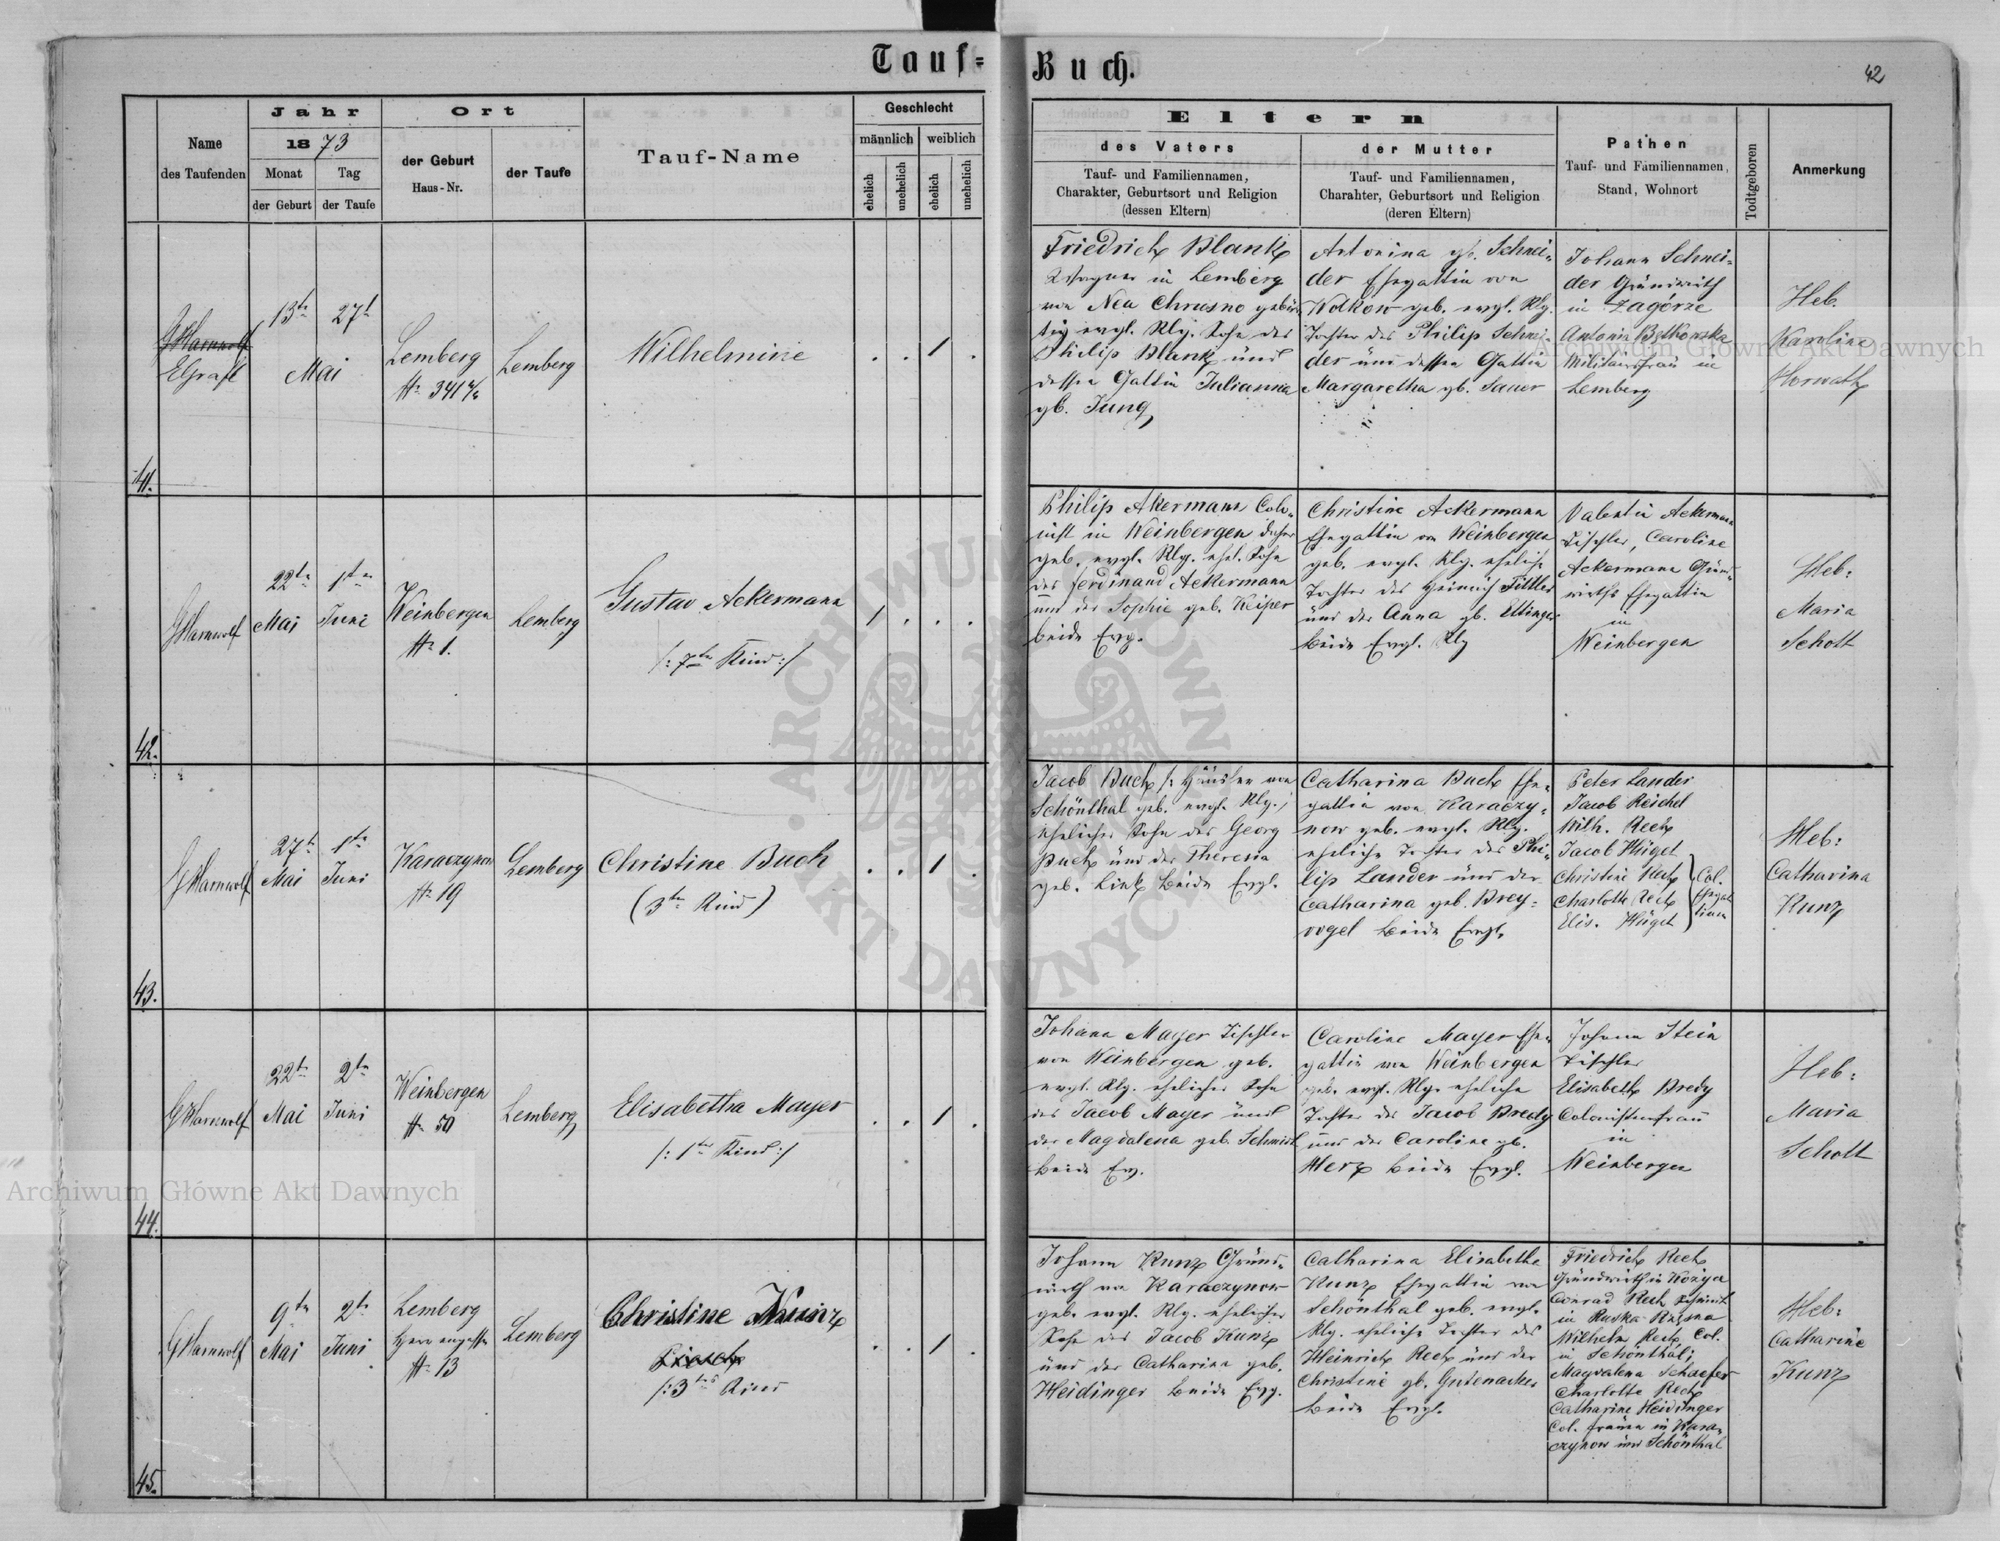 Tauf=
Buch.
42
Name
des Taufenden
Jahr
1873
Monat
der Geburt
Tag
der Taufe
Ort
der Geburt
Haus-Nr.
der Taufe
Tauf-Name
Geschlecht
männlich
weiblich
ehelich
unehelich
ehelich
unehelich
Eltern
des Vaters
Tauf- und Familiennamen,
Charakter, Geburtsort und Religion
(dessen Eltern)
der Mutter
Tauf- und Familiennamen,
Charahter, Geburtsort und Religion
(deren Eltern)
Pathen
Tauf- und Familiennamen,
Stand, Wohnort
Todtgeboren
Anmerkung
41.
EGrafl
13te
27t
Mai
Lemberg
Lemberg
Wilhelmine
Friedrich Blank
in Lemberg
von Neu Chrusno gebür
tig evgl. Rlg. Sohn des
Philip Blank und
dessen Gattin Julianna
gb. Jung
Antonina gb. Schnei=
der Ehegattin von
Wolkow geb. evgl. Rlg.
Tochter des Philip Schnei=
der und dessen Gattin
Margaretha gb. Sauer
Johann Schnei=
der Grundwirth
in Zagórze
Antonia
in
Lemberg
Heb.
Karoline
Horwath
42.
22te
Mai
1te
Juni
Weinbergen
N 1.
Lemberg
Gustav Ackermann
/: 7te Kind :/
Philip Akermann Colo=
nist in Weinbergen daher
geb. evgl. Rlg. ehel. Sohn
des Ferdinand Ackermann
und der Sophie geb. Keiper
beide Evg.
Christine Ackermann
Ehegattin von Weinbergen
geb. evgl. Rlg. eheliche
Tochter des Heinrich
und der Anna gb. Ettinger
beide Evgl. Rlg
Valentin Ackermann
Tischler, Caroline
Ackermann Grund=
wirths Ehegattin
in
Weinbergen
Heb:
Maria
Schott
43.
27te
Mai
1te
Juni
Karaczynow
N 19
Lemberg
Christine Buch
(3te Kind)
Jacob Buch /: Häusler von
Schönthal geb. evgl. Rlg.
ehelicher Sohn des Georg
Buch und der Theresia
geb. Link beide Evgl.
Catharina Buch Ehe=
gattin von Karaczy=
now geb. evgl. Rlg.
eheliche Tochter des Phi=
lip Lander und der
Catharina geb. Brey=
vogel beide Evgl.
Peter Lander
Jacob Reichel
Wilh. Rech
Jacob Hüget
Christine Rech
Charlotte Rech
Elis. Hüget
Col.
Ehegat
tinen
Heb:
Catharina
Kunz
44.
22te
Mai
2te
Juni
Weinbergen
N 50
Lemberg
Elisabetha Mayer
/: 1te Kind :/
Johann Mayer Tischler
von Weinbergen geb.
evgl. Rlg. ehelicher Sohn
des Jacob Mayer und
der Magdalena geb. Schmidt
beide Ev.
Caroline Mayer Ehe=
gattin von Weinbergen
geb. evgl. Rlg. eheliche
Tochter des Jacob Bredy
und der Caroline gb.
Merz beide Evgl.
Johann Stein
Tischler
Elisabeth Bredy
Colonistenfrau
in
Weinbergen
Heb:
Maria
Schott
45.
9te
Mai
2te
Juni
Lemberg
N 13
Lemberg
Christine Kunz
/: 3tes Kind
Johann Kunz Grund=
wirth von Karaczynow
geb. evgl. Rlg. ehelicher
Sohn des Jacob Kunz
und der Catharina geb.
Heidinger beide Evg.
Catharina Elisabetha
Kunz Ehegattin von
Schönthal geb. evgl.
Rlg. eheliche Tochter des
Heinrich Rech und der
Christine gb. Gutenacker
beide Evgl.
Friedrich Rech
Grundwirth in
Conrad Rech
in
Wilhelm Rech Col.
in Schönthal;
Magdalena Schaefer
Charlotte Rech
Catharine Heidinger
Col. frauen in Kara=
czynow und Schönthal
Heb:
Catharine
Kunz
ARCHIWUM GŁÓWNE AKT DAWNYCH
Archiwum Główne Akt Dawnych
Archiwum Główne Akt Dawnych